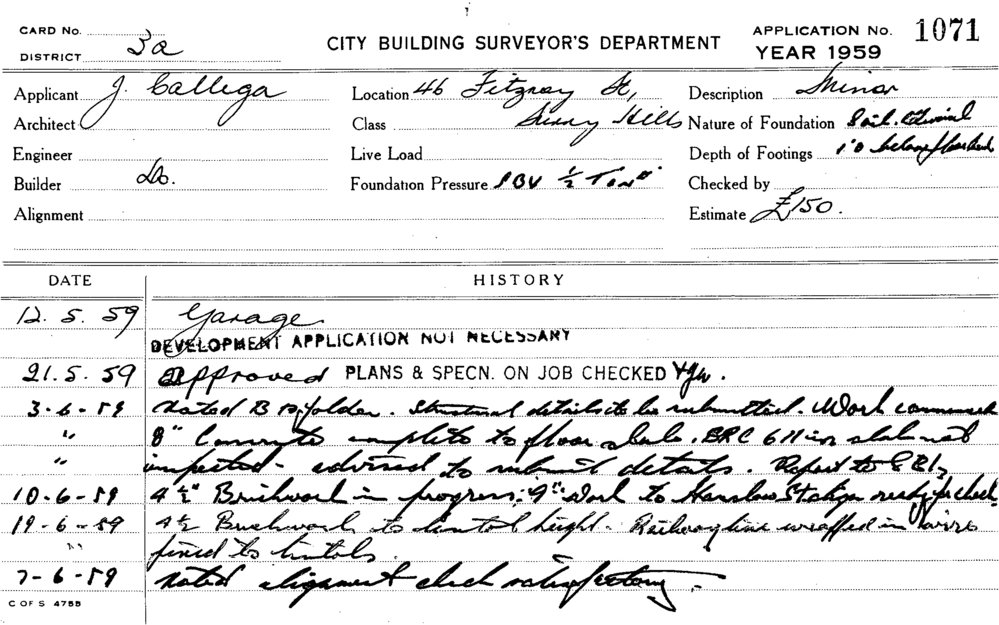 CARD No.
DISTRICT 3a
CITY BUILDING SURVEYOR'S DEPARTMENT
APPLICATION No. 1071
YEAR 1959
Applicant J. Callega
Location 46 Fitzroy St,
Description Minor
Architect
Class Surry Hills
Nature of Foundation Soil.
Engineer
Live Load
Depth of Footings 1'0 below
Builder Do.
Foundation Pressure SBV ½ Ton
Checked by
Alignment
Estimate £150.
DATE
HISTORY
12. 5. 59 Garage
DEVELOPMENT APPLICATION NOT NECESSARY
21. 5. 59 Approved PLANS & SPECN. ON JOB CHECKED
3-6-59 Noted B in folder. Structural details to be submitted. Work commenced
" 8" Concrete complete to floor slab. BRC 611 in slab not
" inspected - advised to submit details. Report to
10-6-59 4½" Brickwork in progress. 9" work to ready for check
19-6-59 4½ Brickwork to lintol height. Railway line wrapped in wire
fixed to lintols.
7-6-59 Noted alignment check satisfactory.
C OF S 4755